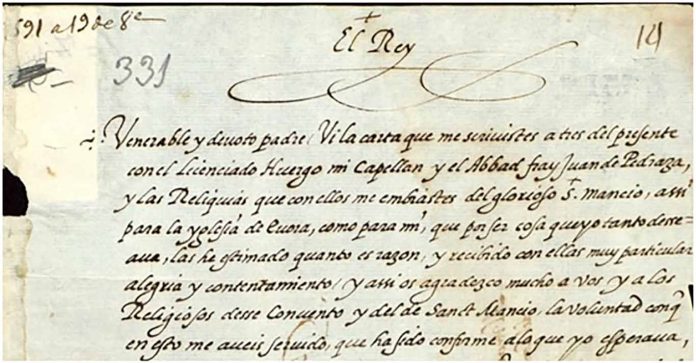 591 a 19 de 8e
El Rey
14
331
Venerable y devoto padre / Vi la carta que me scrivistes a tres del presente
con el Licenciado Huergo mi Capellan y el Abbad fray Juan de Pedraza,
y las Reliquias que con ellos me embiastes del glorioso St. Mancio, assi
para la yglesia de Evora, como para mi, que por ser cosa que yo tanto desse-
ava, las he estimado quanto es razon, y recibido con ellas muy particular
alegria y contentamiento / y assi os agradezco mucho a vos y a los
Religiosos desse Convento y del de Sanct Mancio, la voluntad conq
en esto me aveis servido, que ha sido conforme alo que yo esperava,